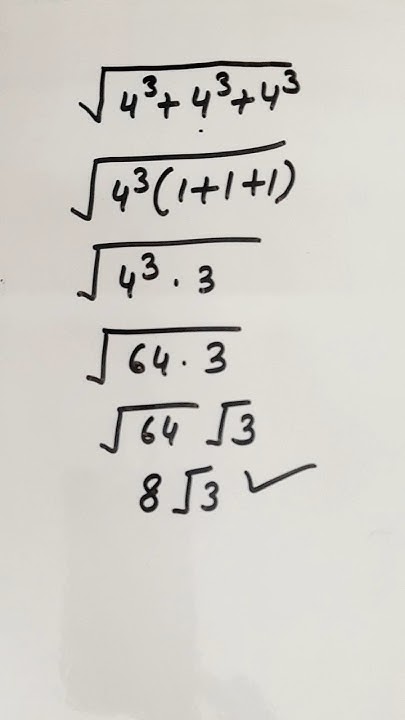 √(4³ + 4³ + 4³)
√(4³(1+1+1))
√(4³ · 3)
√(64 · 3)
√64 √3
8√3 ✓